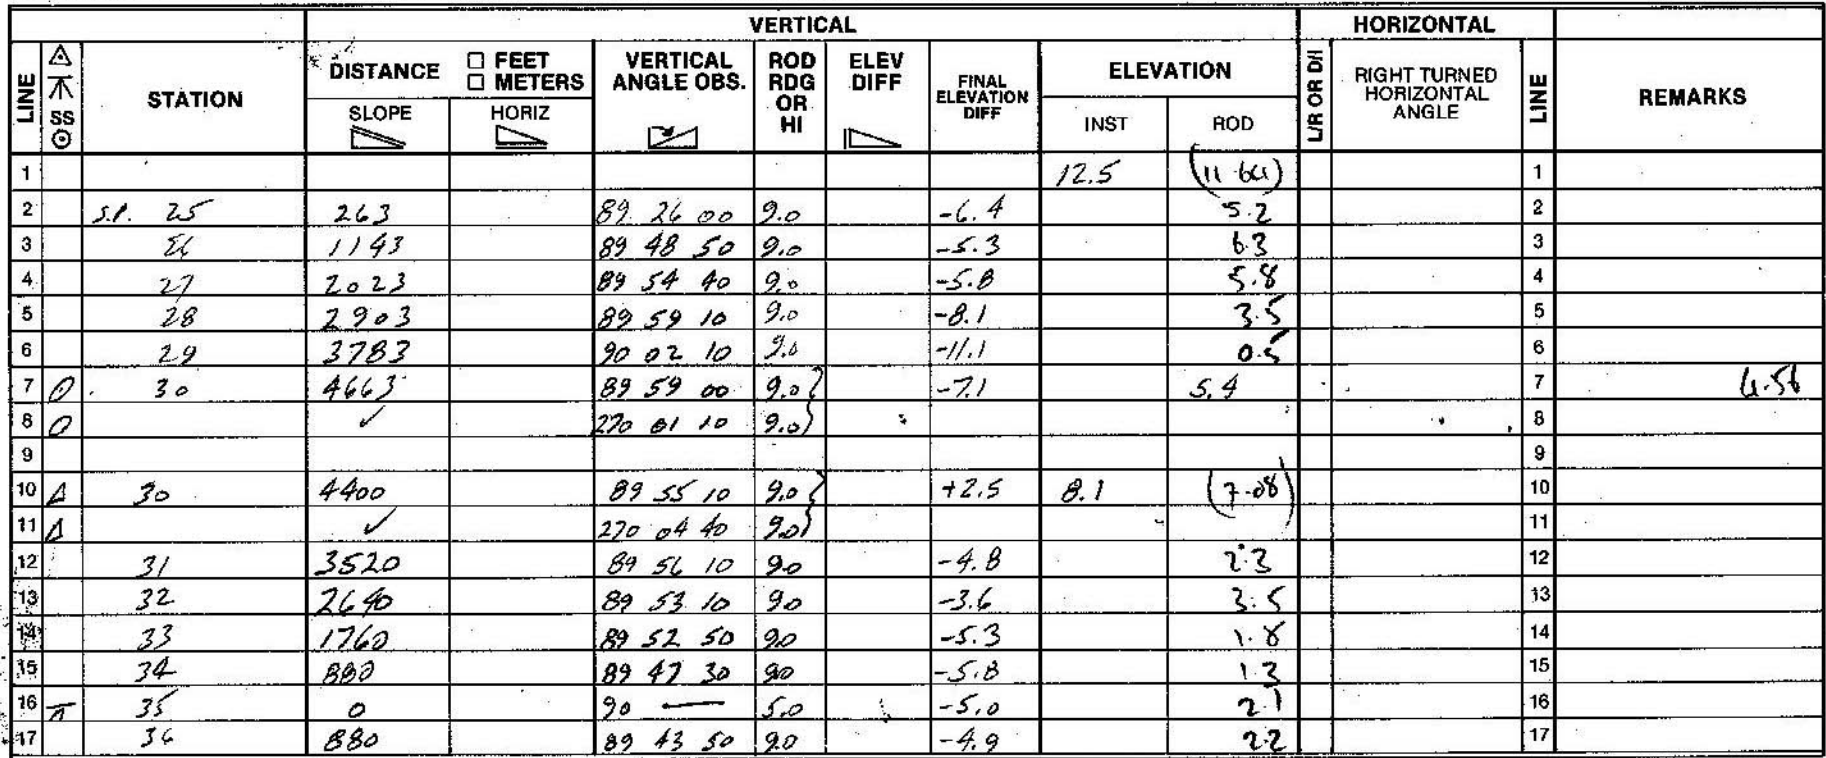 VERTICAL HORIZONTAL
LINE SS STATION DISTANCE □ FEET □ METERS SLOPE HORIZ VERTICAL ANGLE OBS. ROD RDG OR HI ELEV DIFF FINAL ELEVATION DIFF ELEVATION INST ROD L/R OR D/I RIGHT TURNED HORIZONTAL ANGLE LINE REMARKS
1 12.5 1
2 S.P. 25 263 89 26 00 9.0 -6.4 5.2 2
3 26 1143 89 48 50 9.0 -5.3 6.3 3
4 27 2023 89 54 40 9.0 -5.8 5.8 4
5 28 2903 89 59 10 9.0 -8.1 3.5 5
6 29 3783 90 02 10 9.0 -11.1 0.5 6
7 30 4663 89 59 00 9.0 -7.1 5.4 7
8 ✓ 270 01 10 9.0 8
9 9
10 30 4400 89 55 10 9.0 +2.5 8.1 (7.08) 10
11 ✓ 270 04 40 9.0 11
12 31 3520 89 56 10 9.0 -4.8 2.3 12
13 32 2640 89 53 10 90 -3.6 3.5 13
14 33 1760 89 52 50 90 -5.3 1.8 14
15 34 880 89 47 30 90 -5.8 1.3 15
16 35 0 90 — 5.0 -5.0 2.1 16
17 36 880 89 43 50 90 -4.9 2.2 17